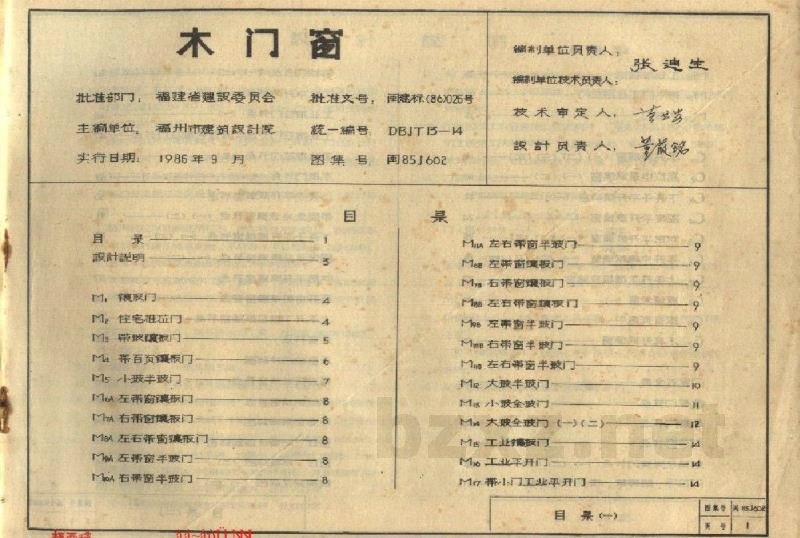 木门窗
批准部门：福建省建設委员会 批准文号：闽建标(86)026号
主编单位：福州市建筑設計院 统一编号 DBJT13-14
实行日期：1986年9月 图集号 闽85J602
编制单位负责人：张迪生
编制单位技术负责人：
技术审定人：
設計负责人：
目 录
目 录 1
設計説明 3
M₁ 镶板门 4
M₂ 住宅阳台门 4
M₃ 带玻镶板门 5
M₄ 带百页镶板门 6
M₅ 小玻半玻门 7
M6A 左带窗镶板门 8
M7A 右带窗镶板门 8
M8A 左右带窗镶板门 8
M9A 左带窗半玻门 8
M10A 右带窗半玻门 8
M11A 左右带窗半玻门 9
M6B 左带窗镶板门 9
M7B 右带窗镶板门 9
M8B 左右带窗镶板门 9
M9B 左带窗半玻门 9
M10B 右带窗半玻门 9
M11B 左右带窗半玻门 9
M12 大玻半玻门 10
M13 小玻全玻门 11
M14 大玻全玻门 (一)(二) 12
M15 工业镶板门 14
M16 工业平开门 14
M17 带小门工业平开门 14
目 录 (一)
图集号 闽85J602
页号 1